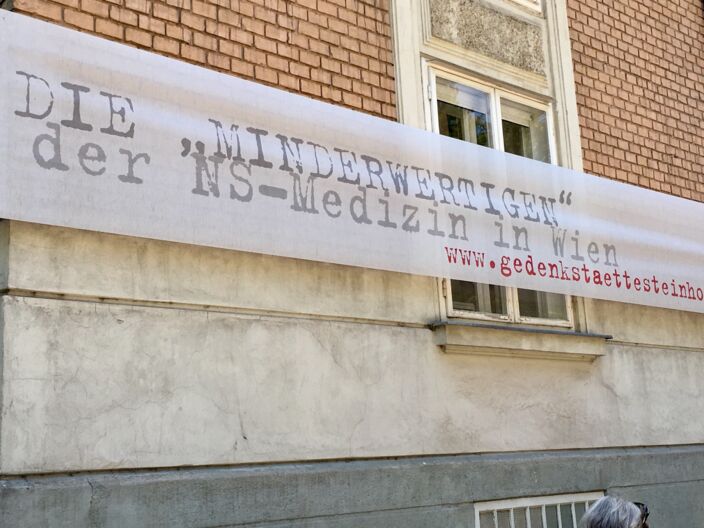 DIE „MINDERWERTIGEN“
der NS-Medizin in Wien
www.gedenkstaettesteinho